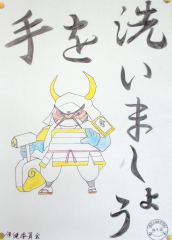 手を
洗いましょう
保健委員会